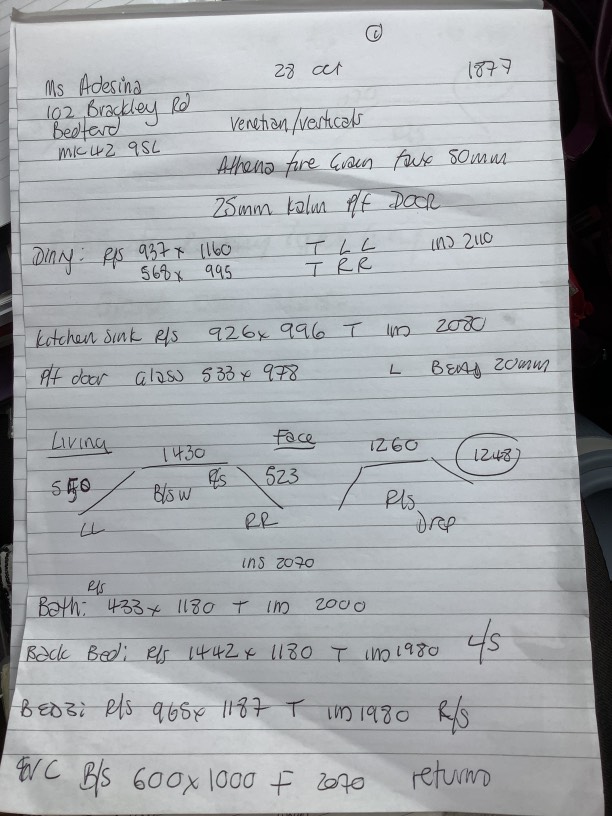 ①
28 oct 1877
Ms Adesina
102 Brackley Rd
Bedford
MK42 9SL
Venetian/verticals
Athena fire Grain faux 50mm
25mm Kalm P/f DOOR
Dinny: R/s 937 x 1160 T L L ins 2110
568 x 995 T R R
Kitchen Sink R/s 926 x 996 T ins 2080
P/f door Glass 533 x 978 L BEAD 20mm
Living 1430 Face 1260 1248
550 B/s W R/s 523 R/s
LL RR Drop
ins 2070
R/s
Bath: 433 x 1180 T ins 2000
Back Bed: R/s 1442 x 1180 T ins 1980 L/S
BED3: R/s 965 x 1187 T ins 1980 R/s
W/C B/S 600 x 1000 F 2070 returns